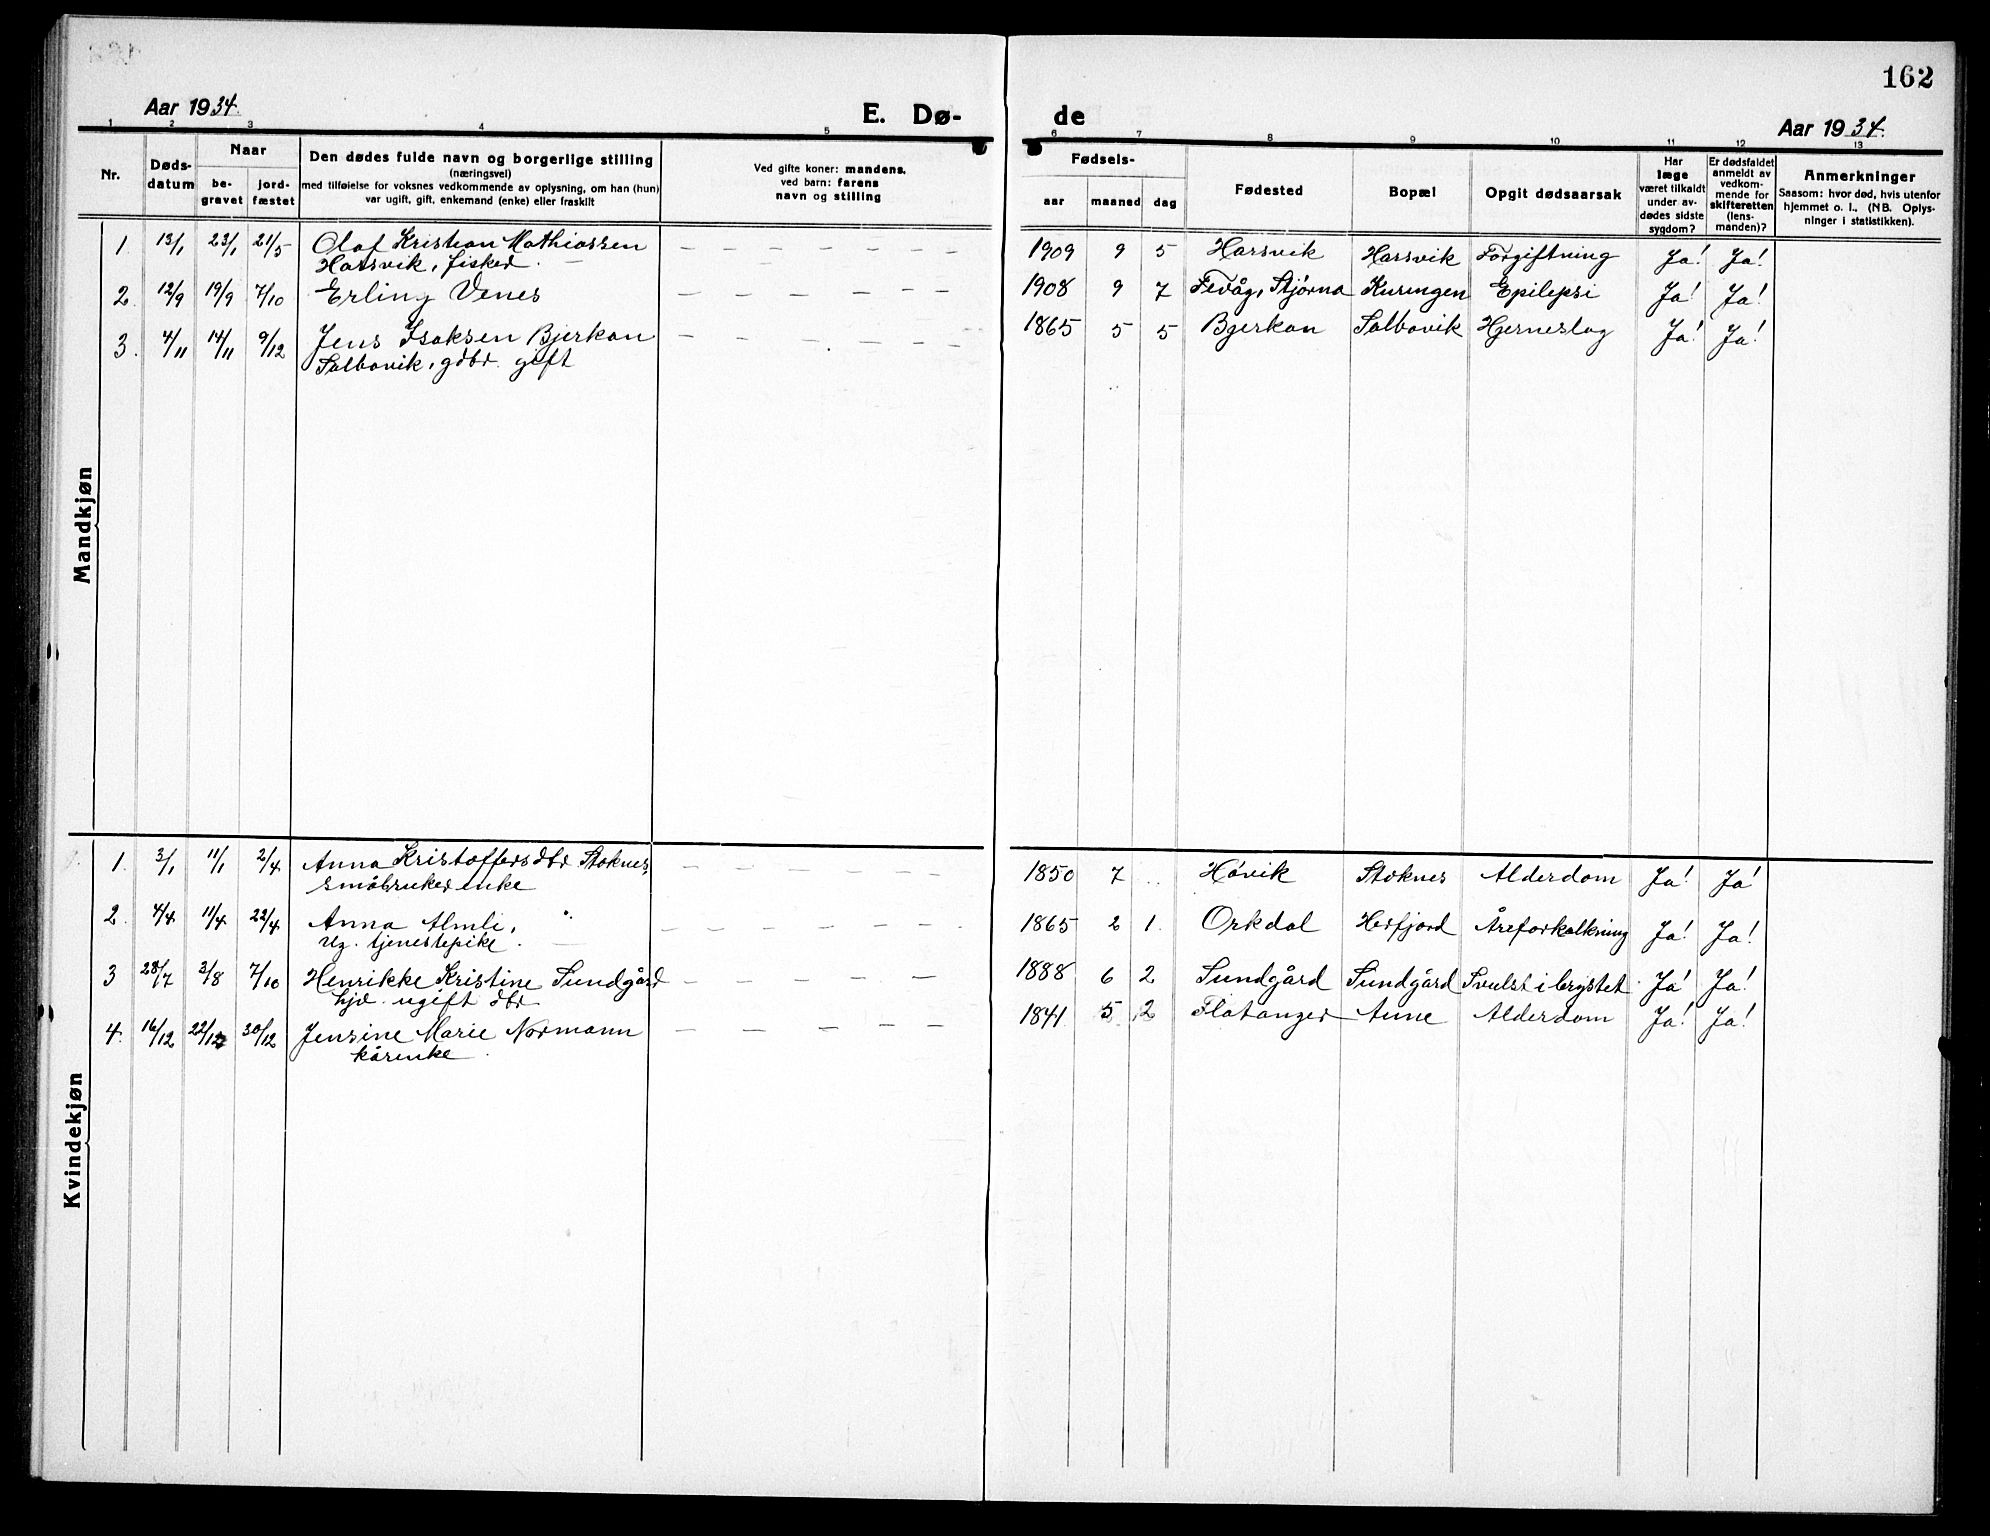 162
Aar 1934.
E. Dø-
de
Aar 1934.
1 2 3 4 5 6 7 8 9 10 11 12 13
Nr.
Døds-
datum
Naar
be-
gravet
jord-
fæstet
Den dødes fulde navn og borgerlige stilling
(næringsvei)
med tilføielse for voksnes vedkommende av oplysning, om han (hun)
var ugift, gift, enkemand (enke) eller fraskilt
Ved gifte koner: mandens.
ved barn: farens
navn og stilling
Fødsels-
aar maaned dag
Fødested
Bopæl
Opgit dødsaarsak
Har
læge
været tilkaldt
under av-
dødes sidste
sygdom?
Er dødsfaldet
anmeldt av
vedkom-
mende for
skifteretten
(lens-
manden)?
Anmerkninger
Saasom: hvor død, hvis utenfor
hjemmet o. l., (NB. Oplys-
ninger i statistikken).
Mandkjøn
1. 13/1 23/1 21/5 Olaf Kristian Mathiassen — — — — — — 1909 9 5 Harsvik Harsvik Forgiftning Ja! Ja!
Harsvik, fisker. —
2. 12/9 19/9 7/10 Erling Venes — — — — — — 1908 9 7 Fevåg, Stjørna Kuringen Epilepsi Ja! Ja!
3. 4/11 14/11 9/12 Jens Isaksen Bjerkan — — — — — — 1865 5 5 Bjerkan Salbovik Hjerneslag Ja! Ja!
Salbovik, gdbr. gift
Kvindekjøn
1. 3/1 11/1 2/4 Anna Kristoffersdtr Stoknes, — — — — — — 1850 7 .. Høvik Stoknes Alderdom Ja! Ja!
småbruker enke
2. 4/4 11/4 22/4 Anna Almli, — — — — — — 1865 2 1. Orkdal Herfjord Åreforkalkning Ja! Ja!
ug. tjenestepike. —
3 28/7 3/8 7/10 Henrikke Kristine Sundgård — — — — — — 1888 6 2 Sundgård Sundgård Svulst i brystet. Ja! Ja!
hjv. ugift dtr
4. 16/12 22/12 30/12 Jensine Marie Normann — — — — — — 1841 5 2 Flatanger Aune Alderdom Ja! Ja!
kårenke